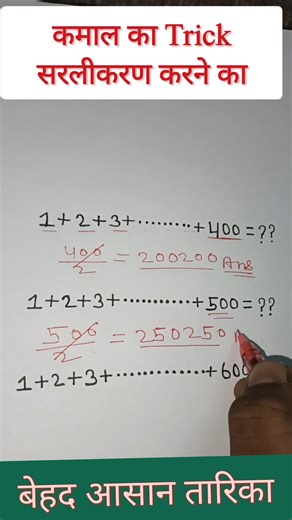 कमाल का Trick
सरलीकरण करने का
1+2+3+·········+400=??
400/2 = 200200 Ans
1+2+3+···········+500=??
500/2 = 250250
1+2+3+············+600
बेहद आसान तारिका